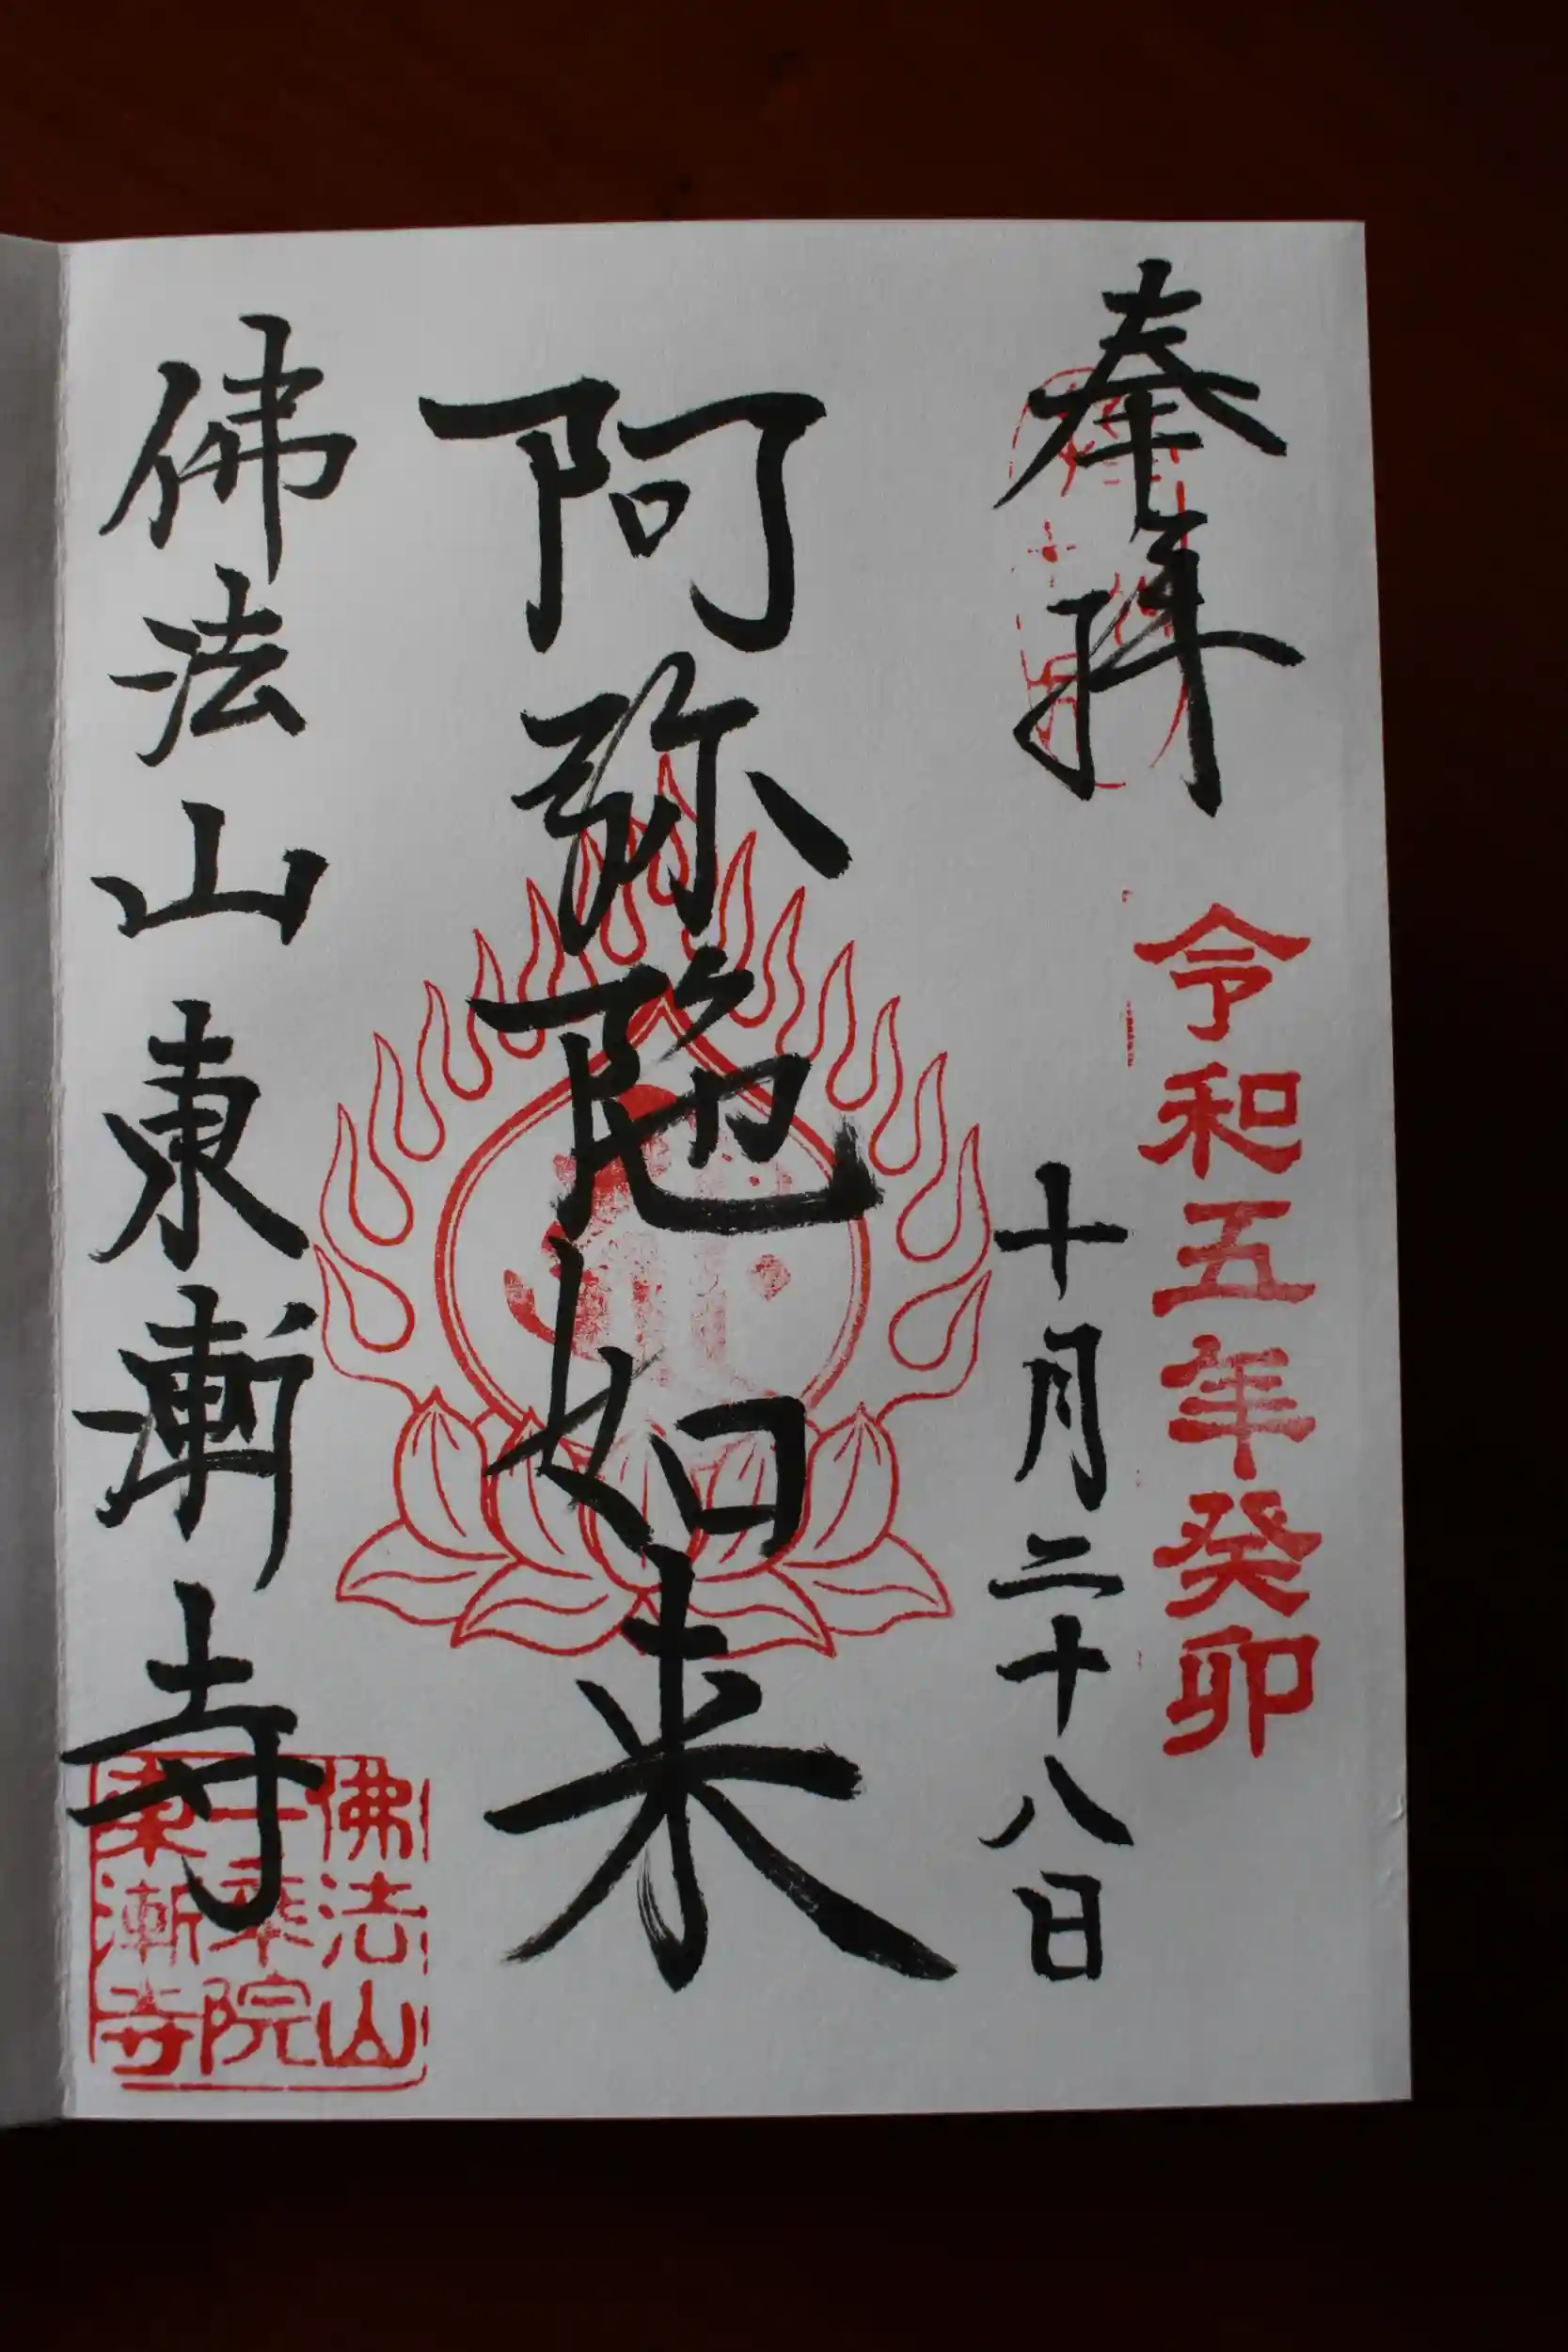 奉拜
令和五年癸卯
十月二十八日
阿弥陁如来
佛法山東漸寺
佛法山
乘院
東漸寺